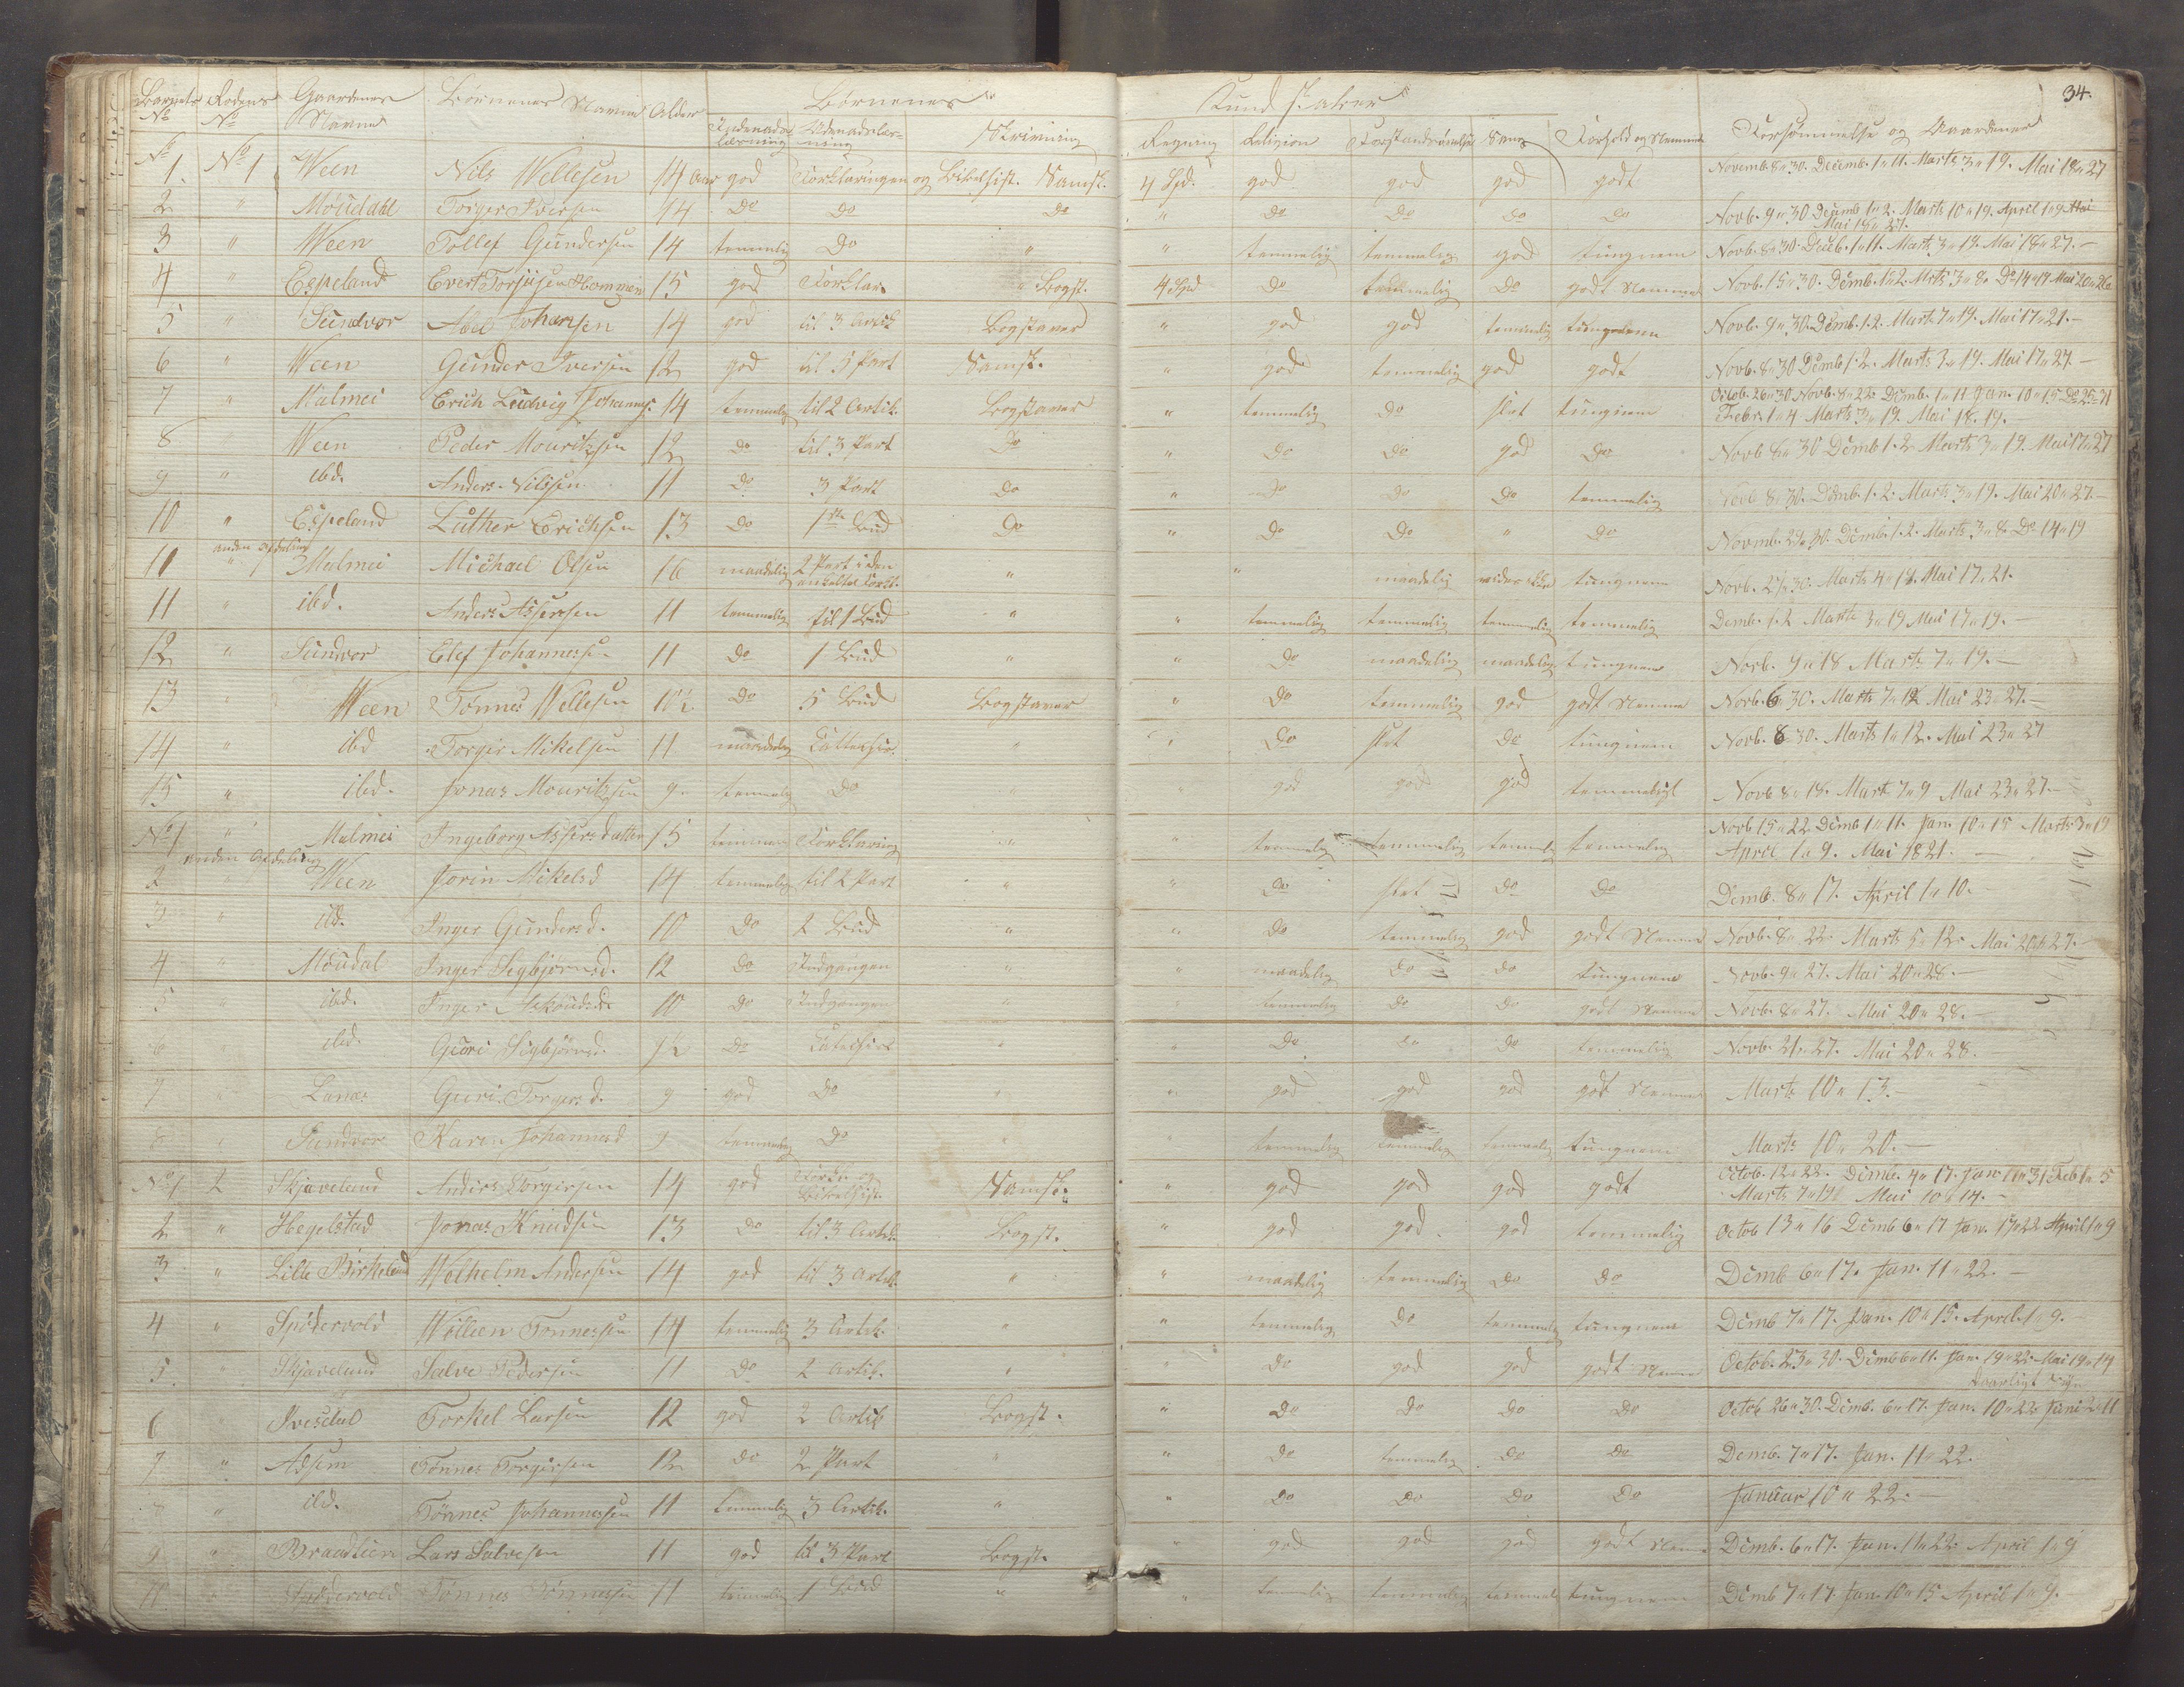 34.
Barnets No Rodens No Gaardenes Navne Børnenes Navne Alder Børnenes Kundskaber Forsømmelse og
Indenadslæsning Udenadslæsning Skrivning Regning Religion Sang Forhold og Nemme
No 1. No 1 Ween Nils Vellesen 14 Aar god Forklaringen og Bibelhist. Samsk. 4 Spd. god god god godt Novemb. 8 " 30. Decemb. 1 " 11. Marts 3 " 19. Mai 18 " 27
2 " Moüdahl Torger Iversen 14 Do Do Do " Do Do Do Do Novb. 9 " 30 Decemb 1 " 2. Marts 10 " 19. April 1 " 9
Mai 18 " 27.
3 " Ween Tollef Gundersen 14 temmelig Do " " temmelig temmelig god tungnem Novb. 8 " 30. Deceb. 1 " 11. Marts 3 " 19. Mai 18 " 27. –
4 " Espeland Evert 15 god Forklar. Bogst. 4 Spd Do temmelig Do godt Nemme Novb. 15 " 30. Demb. 1 " 2. Marts 3 " 8. Do 14 " 19 Mai 20 " 26
5 " Sundvor Abel Johansen 14 god til 3 Artik Bogstaver " god god temmelig tungnem Novb. 9 " 30. Demb. 1. 2. Marts 7 " 19. Mai 17 " 21. –
6 " Ween Gunder Iversen 12 god til 5 Part Samsk. " god temmelig god godt Novb. 8 " 30 Demb 1. 2. Marts 3 " 19. Mai 17 " 27. –
7 " Malmei Erich Ludvig Johannes. 14 temmelig til 2 Artik. Bogstaver " temmelig Do slet tungnem Octob. 26 " 30 Novb. 8 " 22 Demb. 1 " 11 Jan. 10 " 15 Do 25 " 31
Febr. 1 " 4 Marts 3 " 19. Mai 18. 19.
8 " Ween Peder Mouritzsen 12 Do til 3 Part Do " Do Do god Do Novb 8 " 30 Demb 1. 2 Marts 3 " 19. Mai 17 " 27
9 " ibd. Anders Nilssen 11 Do 3 Part Do " Do Do Do temmelig Novb 8 " 30. Demb. 1. 2. Marts 3 " 19. Mai 20 " 27. –
10 " Espeland Luther Erichsen 13 Do 1ste Bud Do " Do Do " Do Novmb. 29 " 30. Demb. 1. 2. Marts 3 " 8. Do 14 " 19
anden Afdeling
11 " Malmei Michael Olsen 16 maadelig 2 Part i den enkelte Forkl. " " maadelig tungnem Novb. 27 " 30. Marts 4 " 19. Mai 17 " 21.
11 " ibd. Anders Assersen 11 temmelig til 1 Bud " " temmelig temmelig temmelig temmelig Demb. 1. 2 Marts 3 " 19 Mai 17 " 19. –
12 " Sundvor Elef Johannessen 11 Do 1 Bud " " Do maadelig maadelig tungnem Novb. 9 " 18 Marts 7 " 19. –
13 " Ween Tønnes Vellesen 10½ Do 5 Bud Bogstaver " Do temmelig god godt Nemme Novb. 6 " 30. Marts 7 " 12 Mai 23 " 27. –
14 " ibd Torger Mikelsen 11 maadelig " " Do slet Do tungnem Novb. 8 " 30. Marts 1 " 12. Mai 23 " 27
15 " ibd. Jonas Mouritzsen 9. temmelig Do " " god god god temmeligt Novb 8 " 18. Marts 7 " 9 Mai 23 " 27. –
No 1 " Malmei Ingeborg Assersdatter 15 temmelig Forklaring " " temmelig temmelig temmelig temmelig Novb 15 " 22 Demb 1 " 11. Jan. 10 " 15 Marts 3 " 19
April 1 " 9. Mai 18 21. –
anden Afdeling
2 Ween Jorin Mikelsd 14 temmelig til 2 Part " " Do slet Do Do Demb. 8 " 17. April 1 " 10.
3 " ibd. Inger Gundersd. 10 Do 2 Bud " " Do temmelig god godt Nemme Novb. 8 " 22 Marts 5 " 12. Mai 20 " 27. –
4 " Moüdal Inger Segbjørnsd. 12 Do Indgangen " " maadelig Do Do tungnem Novb. 9 " 27. Mai 20 " 28. –
5 " ibd. Inger 10 Do Indgangen " " temmelig Do Do godt Nemme Novb. 8 " 27. Mai 20 " 28. –
6 ibd. Guri Sigbjørnsd. 9½ Do " Do Do Do temmelig Novb. 21 " 27. Mai 20 " 28. –
7 " Guri Torgersd. 9 god Do " " god god god godt Nemme Marts 10 " 13. –
8 " Sundvor Karen Johannesd 9 temmelig Do " " temmelig temmelig temmelig tungnem Marts 10 " 20. –
No 1 2 Skjæveland Anders Torgersen 14 god Forkl. og Bibelhist. Samsk. " god god god godt Octob. 12 " 22. Demb. 4 " 17. Jan 11 " 31 Feb 1 " 5
Marts 7 " 19 Mai 10 " 14. –
2 " Hegelstad Jonas Knudsen 13 Do til 3 Artik. Bogst. " god god god temmelig Octob 13 " 16 Demb 6 " 17 Jan. 17 " 22 April 1 " 9
3 " Lille Birkeland Velhelm Andersen 14 god til 3 Artik. " " maadelig temmelig Do Do Demb 6 " 17. Jan. 11 " 22. –
4 " Spødervold Villien Tønnessen 14 temmelig 3 Artik. " " temmelig Do temmelig tungnem Demb 7 " 17. Jan. 10 " 15. April 1 " 9. –
5 " Skjæveland Salve Pedersen 11 Do 2 Artik. " " Do god god godt Nemme Octob. 23 " 30. Demb 6 " 11. Jan. 19 " 22. Mai 19 " 14
6 Ivesdal Torkel Larsen 12 god 2 Artik Bogst. " Do Do Do Do Octob 26 " 30. Demb. 6 " 17. Jan. 10 " 22 Juni 2 " 11
7 " Adsem Tønnes Torgersen 12 Do 2 Part " " Do temmelig Do Do Demb. 7 " 17. Jan. 11 " 22.
8 " ibd. Tønnes Johannessen 11 temmelig 3 Artik. " " Do Do Do Do Januar 10 " 22. –
9 " Braadlien Lars Salvesen 11 god til 3 Part Bogst. " god god god godt Nemme Demb. 6 " 17. Jan. 11 " 22 April 1 " 9
11 " Spødervold Tønnes Tønnessen 11 temmelig 1 Bud " " temmelig temmelig temmelig tungnem Demb 7 " 17 Jan. 10 " 15 April 1 " 9.